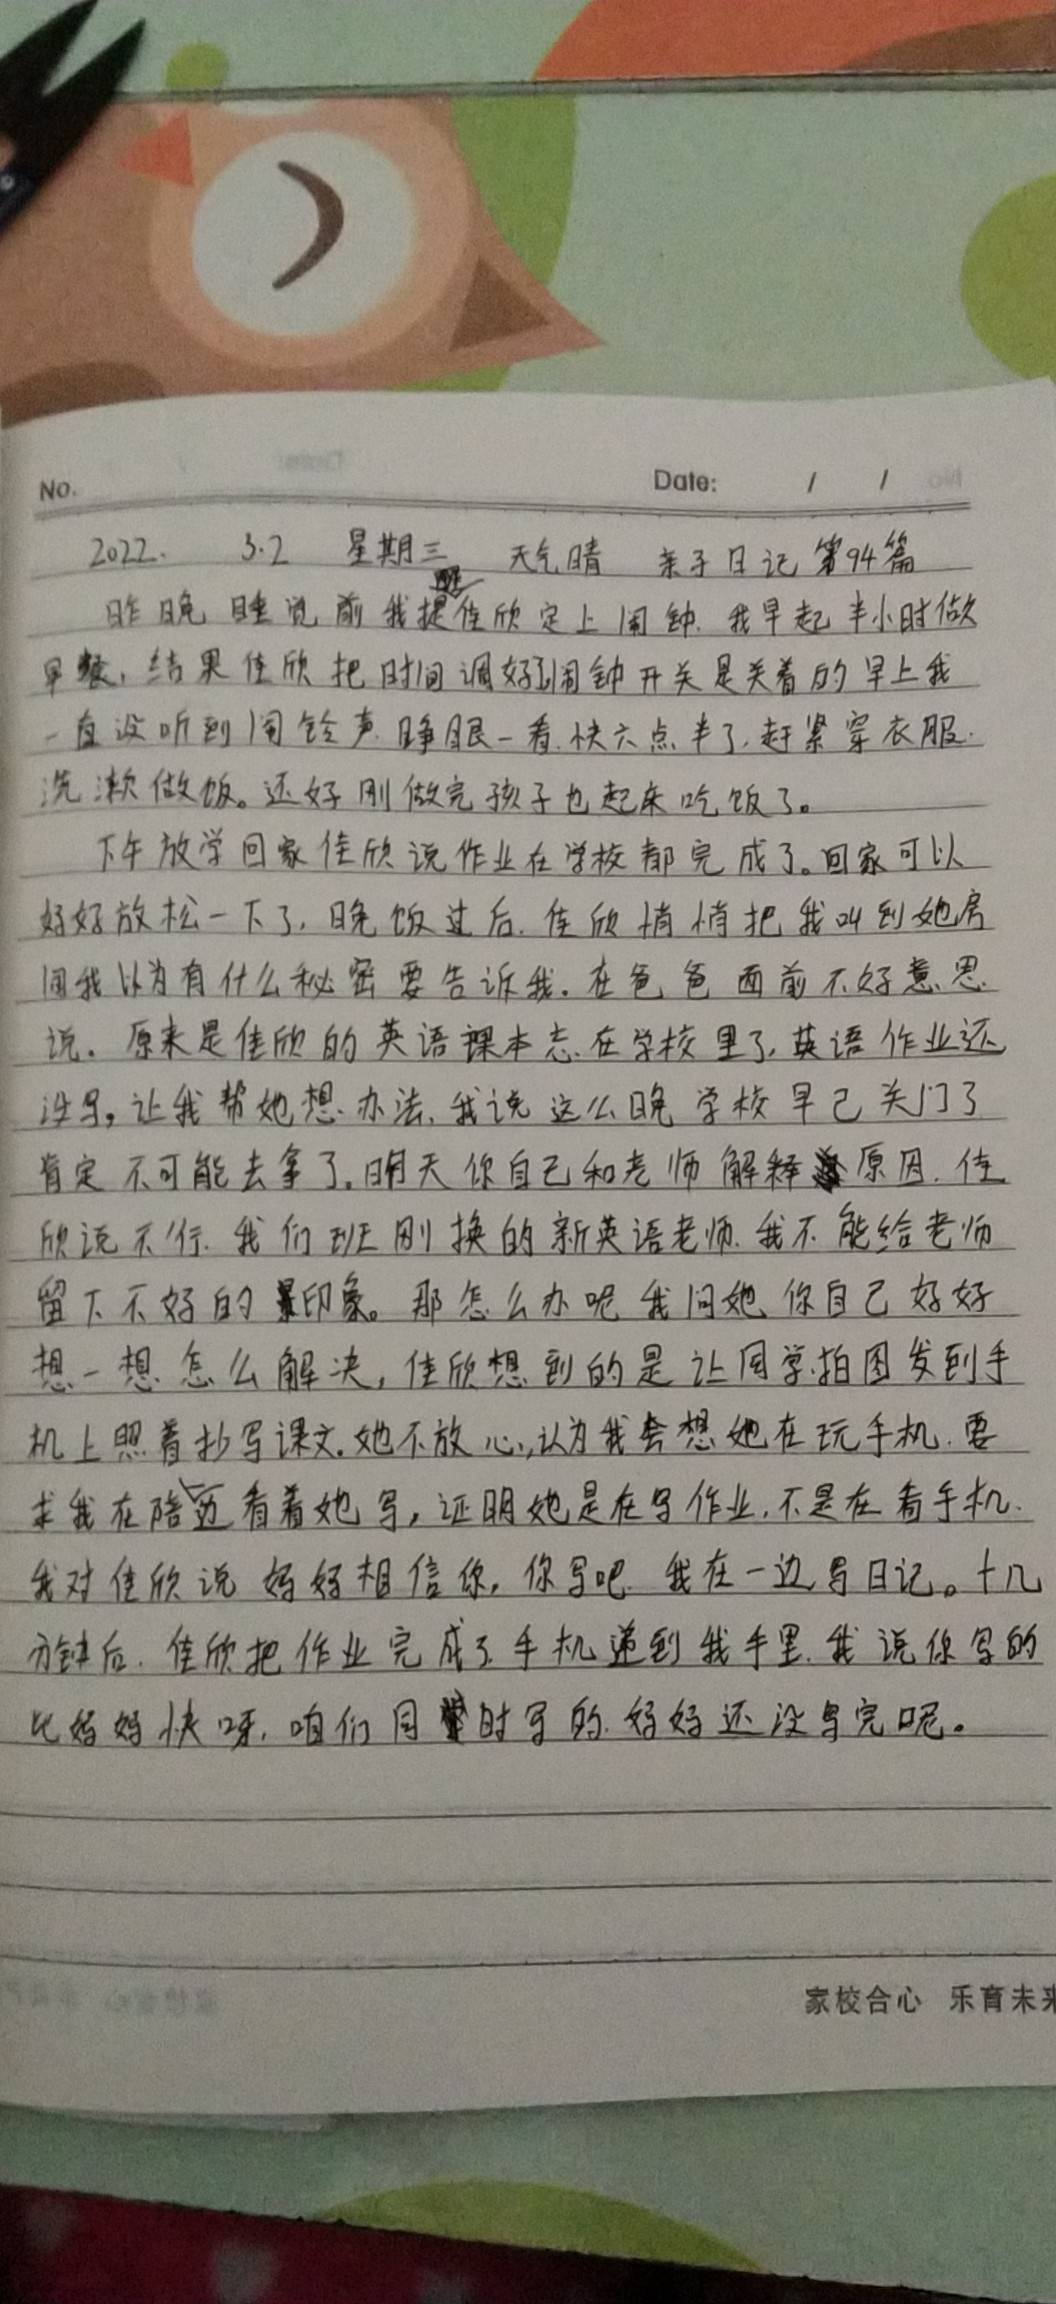 No. Date: / /
2022. 3.2 星期三 天气晴 亲子日记 第94篇
昨晚睡觉前我提醒佳欣定上闹钟.我早起半小时做
早餐,结果佳欣把时间调好了闹钟开关是关着的早上我
一直没听到闹铃声.睁眼一看.快六点半了.赶紧穿衣服.
洗漱做饭。还好刚做完孩子也起床吃饭了。
下午放学回家佳欣说作业在学校都完成了。回家可以
好好放松一下了,晚饭过后.佳欣悄悄把我叫到她房
间我以为有什么秘密要告诉我.在爸爸面前不好意思
说。原来是佳欣的英语课本忘在学校里了,英语作业还
没写,让我帮她想办法,我说这么晚学校早已关门了
肯定不可能去拿了.明天你自己和老师解释原因.佳
欣说不行.我们班刚换的新英语老师.我不能给老师
留下不好的印象。那怎么办呢我问她你自己好好
想一想怎么解决,佳欣想到的是让同学拍图发到手
机上照着抄写课文.她不放心,认为我会想她在玩手机.要
求我在陪边看着她写,证明她是在写作业.不是在看手机.
我对佳欣说妈妈相信你,你写吧.我在一边写日记。十几
分钟后.佳欣把作业完成了手机递到我手里.我说你写的
比妈妈快呀.咱们同时写的.妈妈还没写完呢。
家校合心 乐育未来